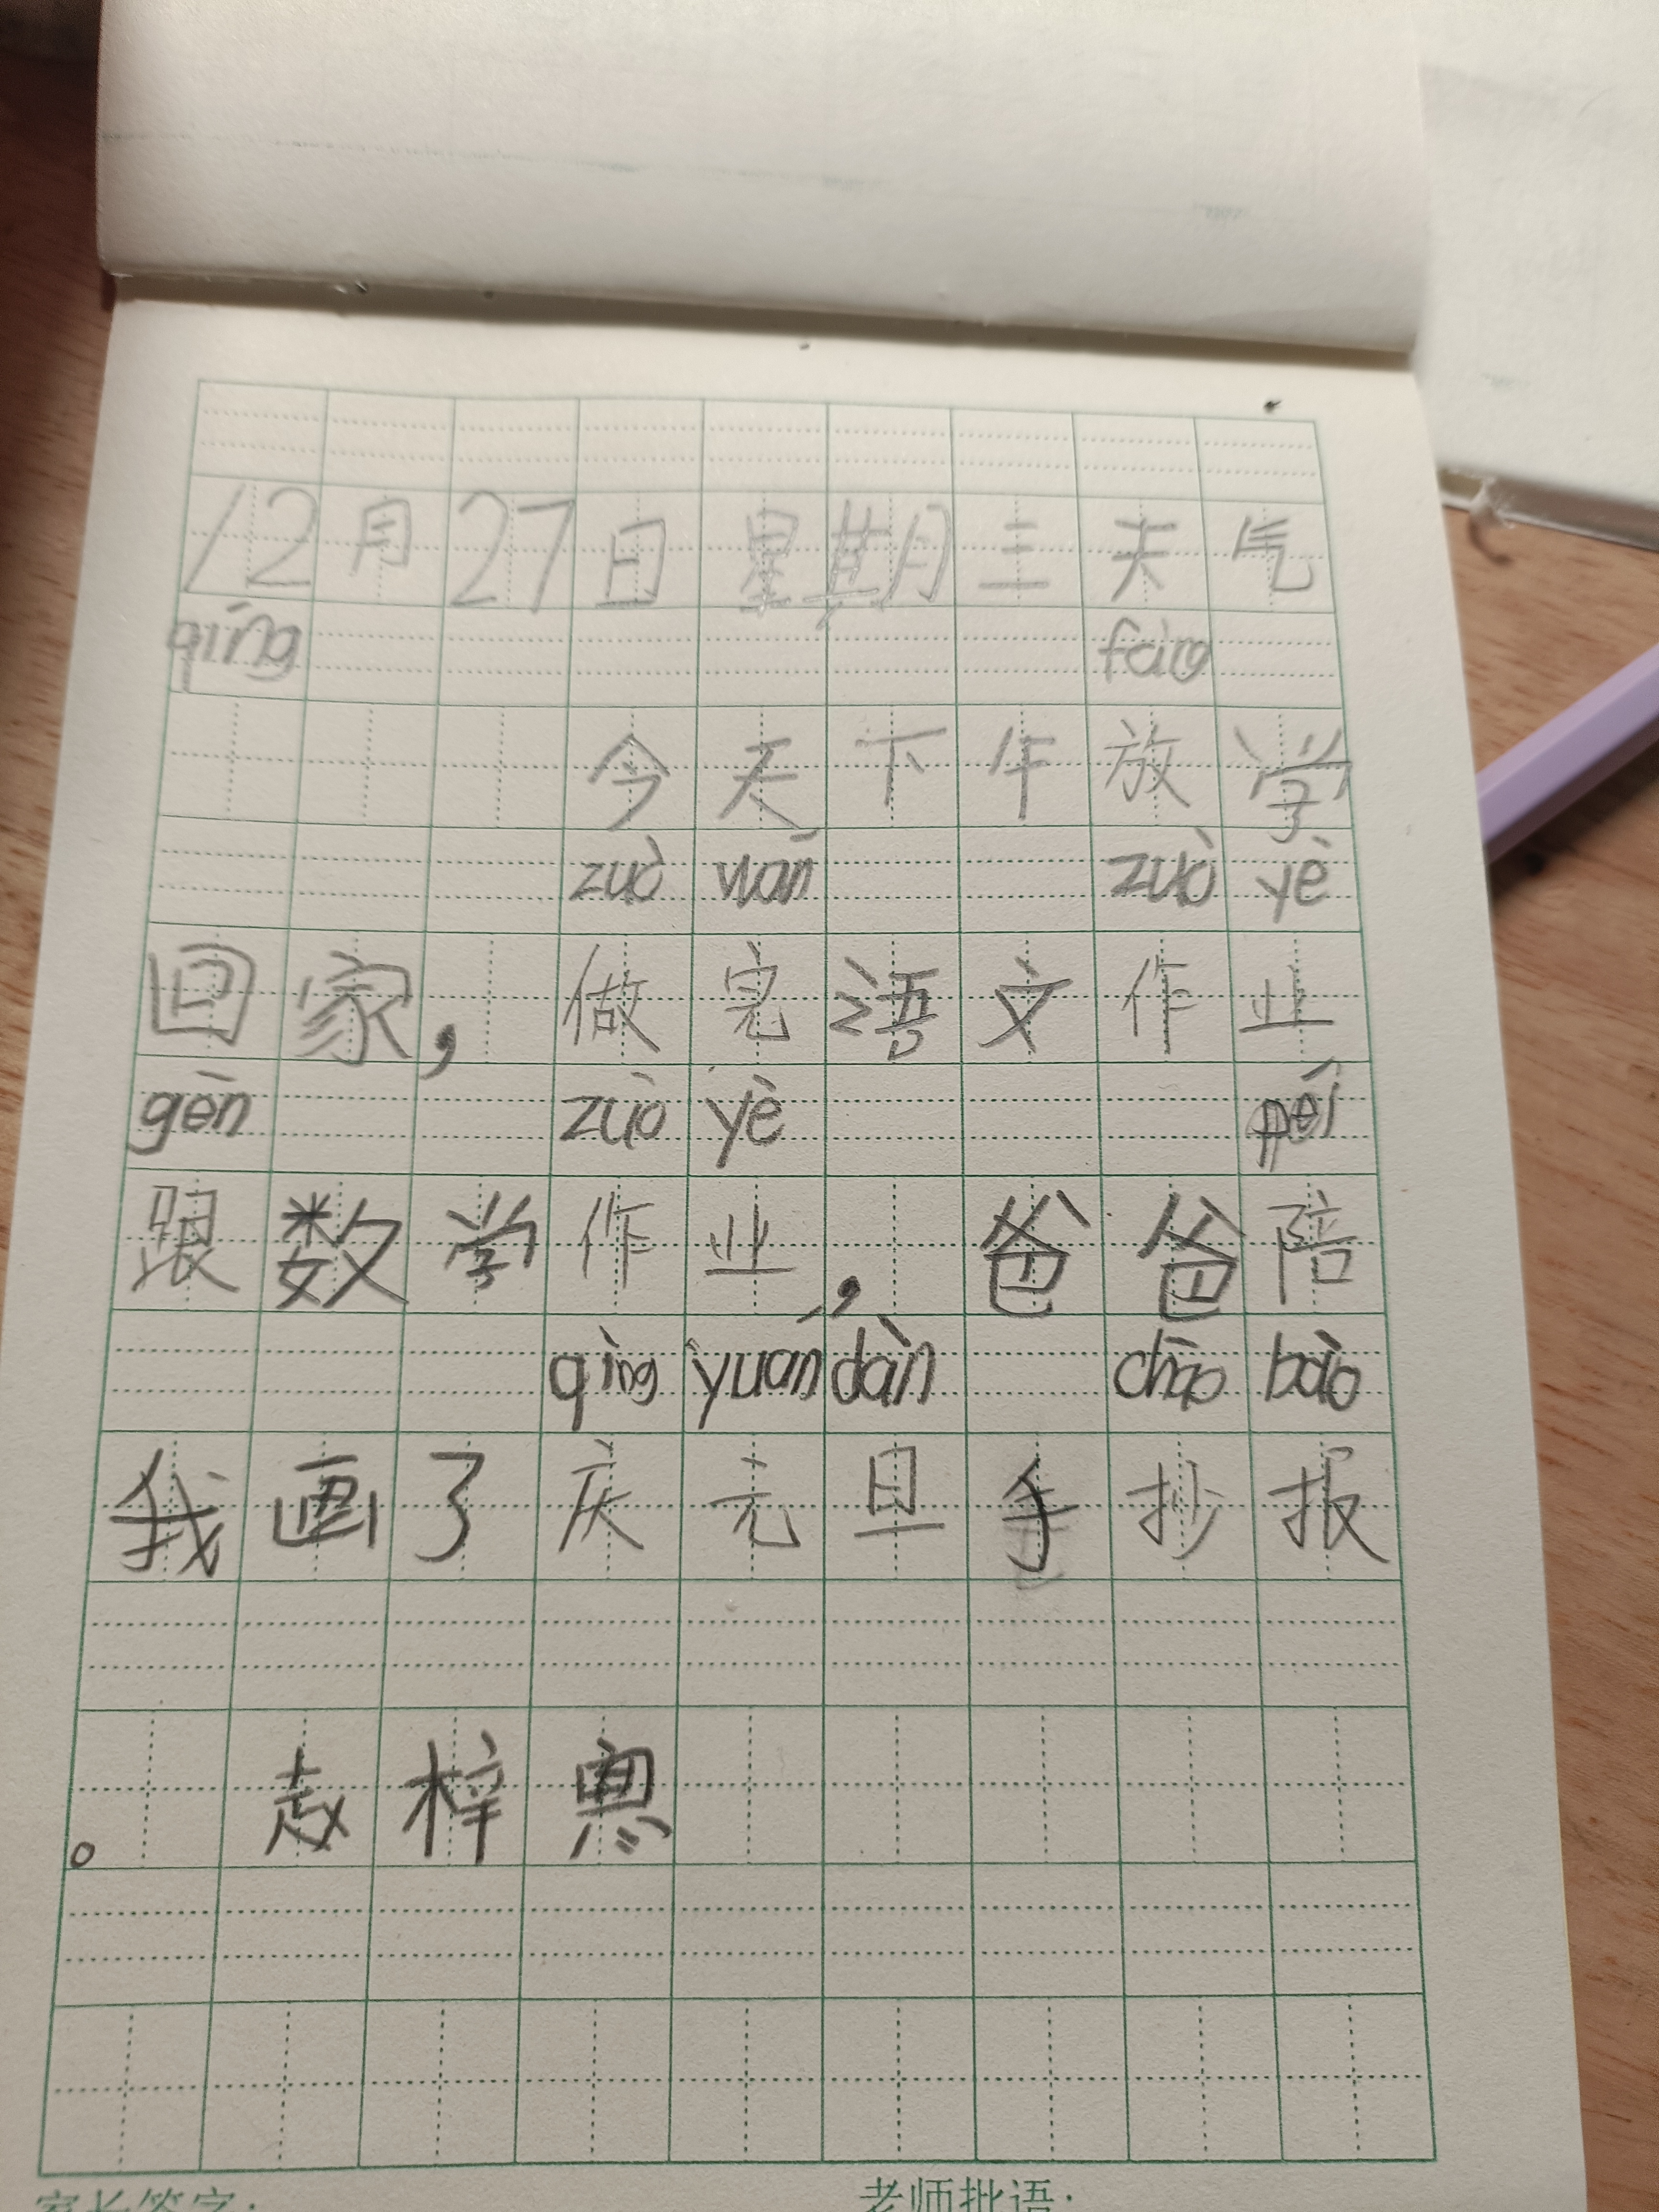 12月27日星期三天气
qíng fàng
今天下午放学
zuò wán zuò yè
回家，做完语文作业
gēn zuò yè péi
跟数学作业，爸爸陪
qìng yuán dàn chāo bào
我画了庆元旦手抄报
。赵梓惠
家长签字：
老师批语：